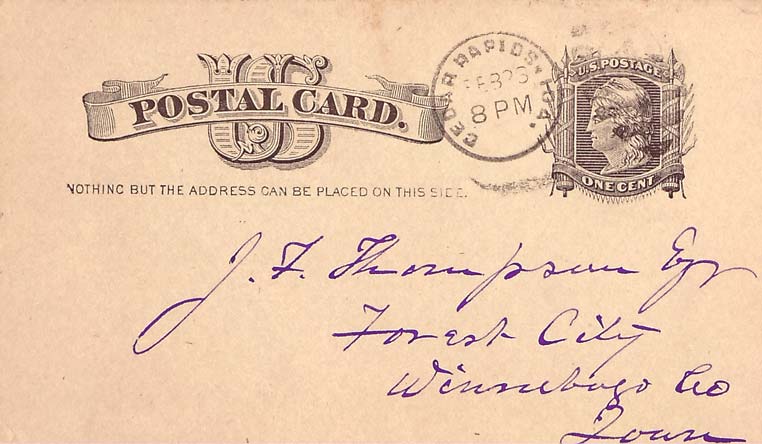 US
POSTAL CARD.
NOTHING BUT THE ADDRESS CAN BE PLACED ON THIS SIDE.
CEDAR RAPIDS IOA.
FEB 23
8 PM
U.S. POSTAGE
ONE CENT
J. F. Thompson Esq
Forest City
Winnebago Co
Iowa